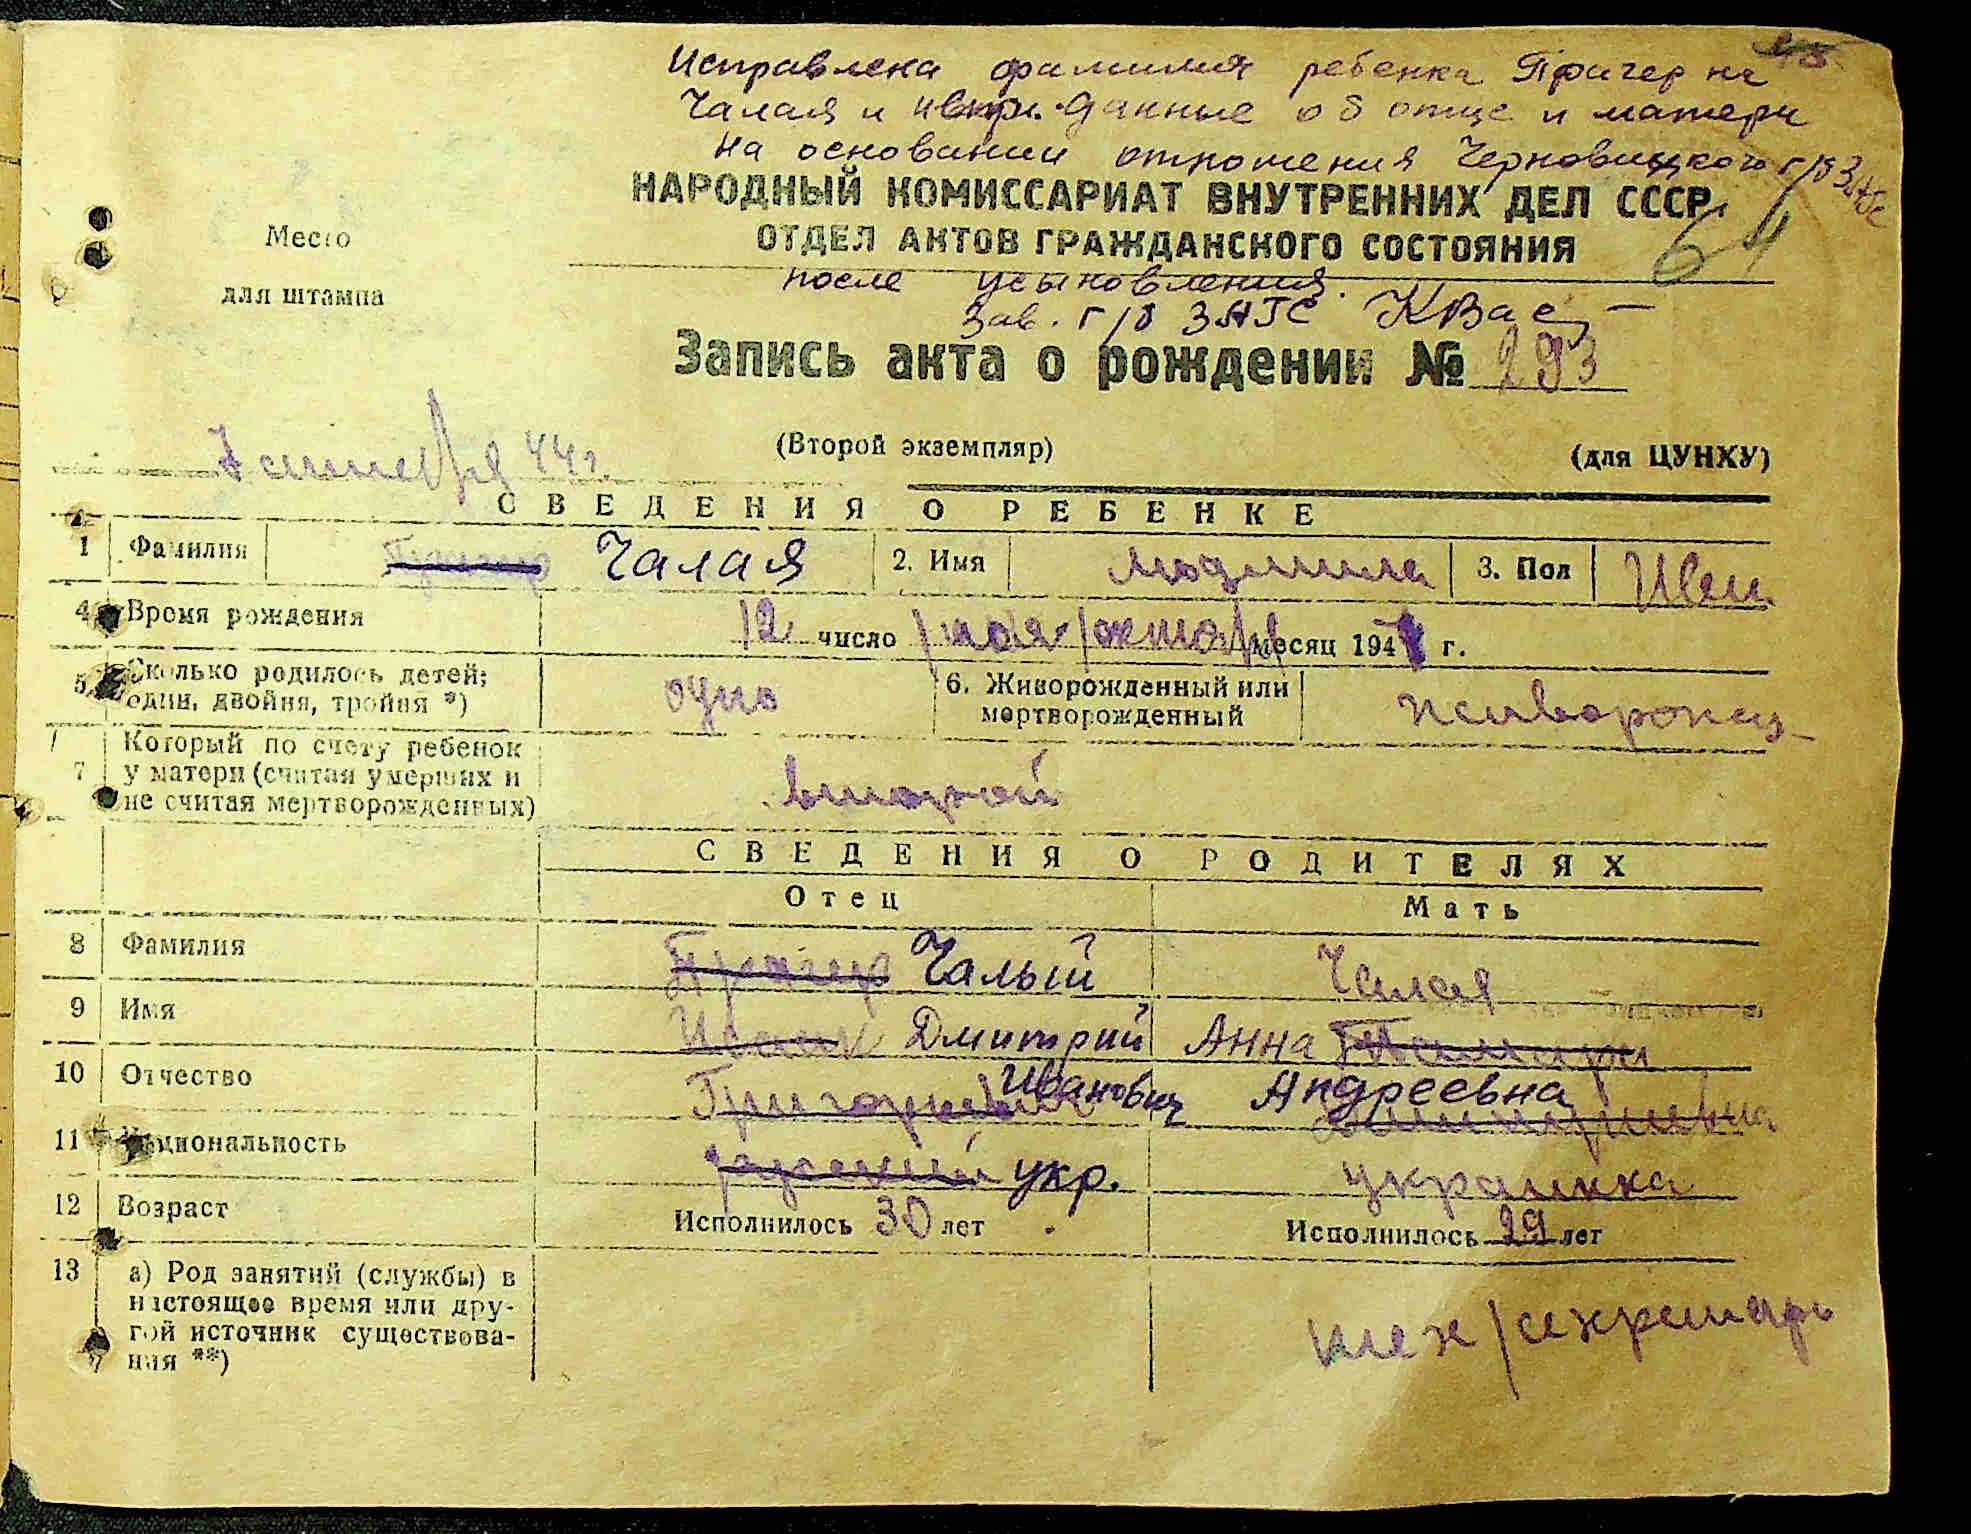 Исправлена фамилия ребенка на
Чалая и данные об отце и матери
на основании отношения Черновицкого г/б ЗАГС
НАРОДНЫЙ КОМИССАРИАТ ВНУТРЕННИХ ДЕЛ СССР
64
ОТДЕЛ АКТОВ ГРАЖДАНСКОГО СОСТОЯНИЯ
Место
для штампа
после усыновления.
Зав. г/б ЗАГС
Запись акта о рождении № 293
44 г.
(Второй экземпляр)
(для ЦУНХУ)
СВЕДЕНИЯ О РЕБЕНКЕ
1 Фамилия Чалая 2. Имя Людмила 3. Пол Жен
4 Время рождения 12 число /мая/октября месяц 194 г.
5 Сколько родилось детей; один, двойня, тройня *) одно 6. Живорожденный или мертворожденный живорожд
7 Который по счету ребенок у матери (считая умерших и не считая мертворожденных) второй
СВЕДЕНИЯ О РОДИТЕЛЯХ
Отец Мать
8 Фамилия Чалый Чалая
9 Имя Исаак Дмитрий Анна Тамара
10 Отчество Григорьевич Иванович Андреевна Дмитриевна
11 Национальность русский укр. украинка
12 Возраст Исполнилось 30 лет Исполнилось 29 лет
13 а) Род занятий (службы) в
настоящее время или дру-
гой источник существова-
ния **)
тех/секретарь